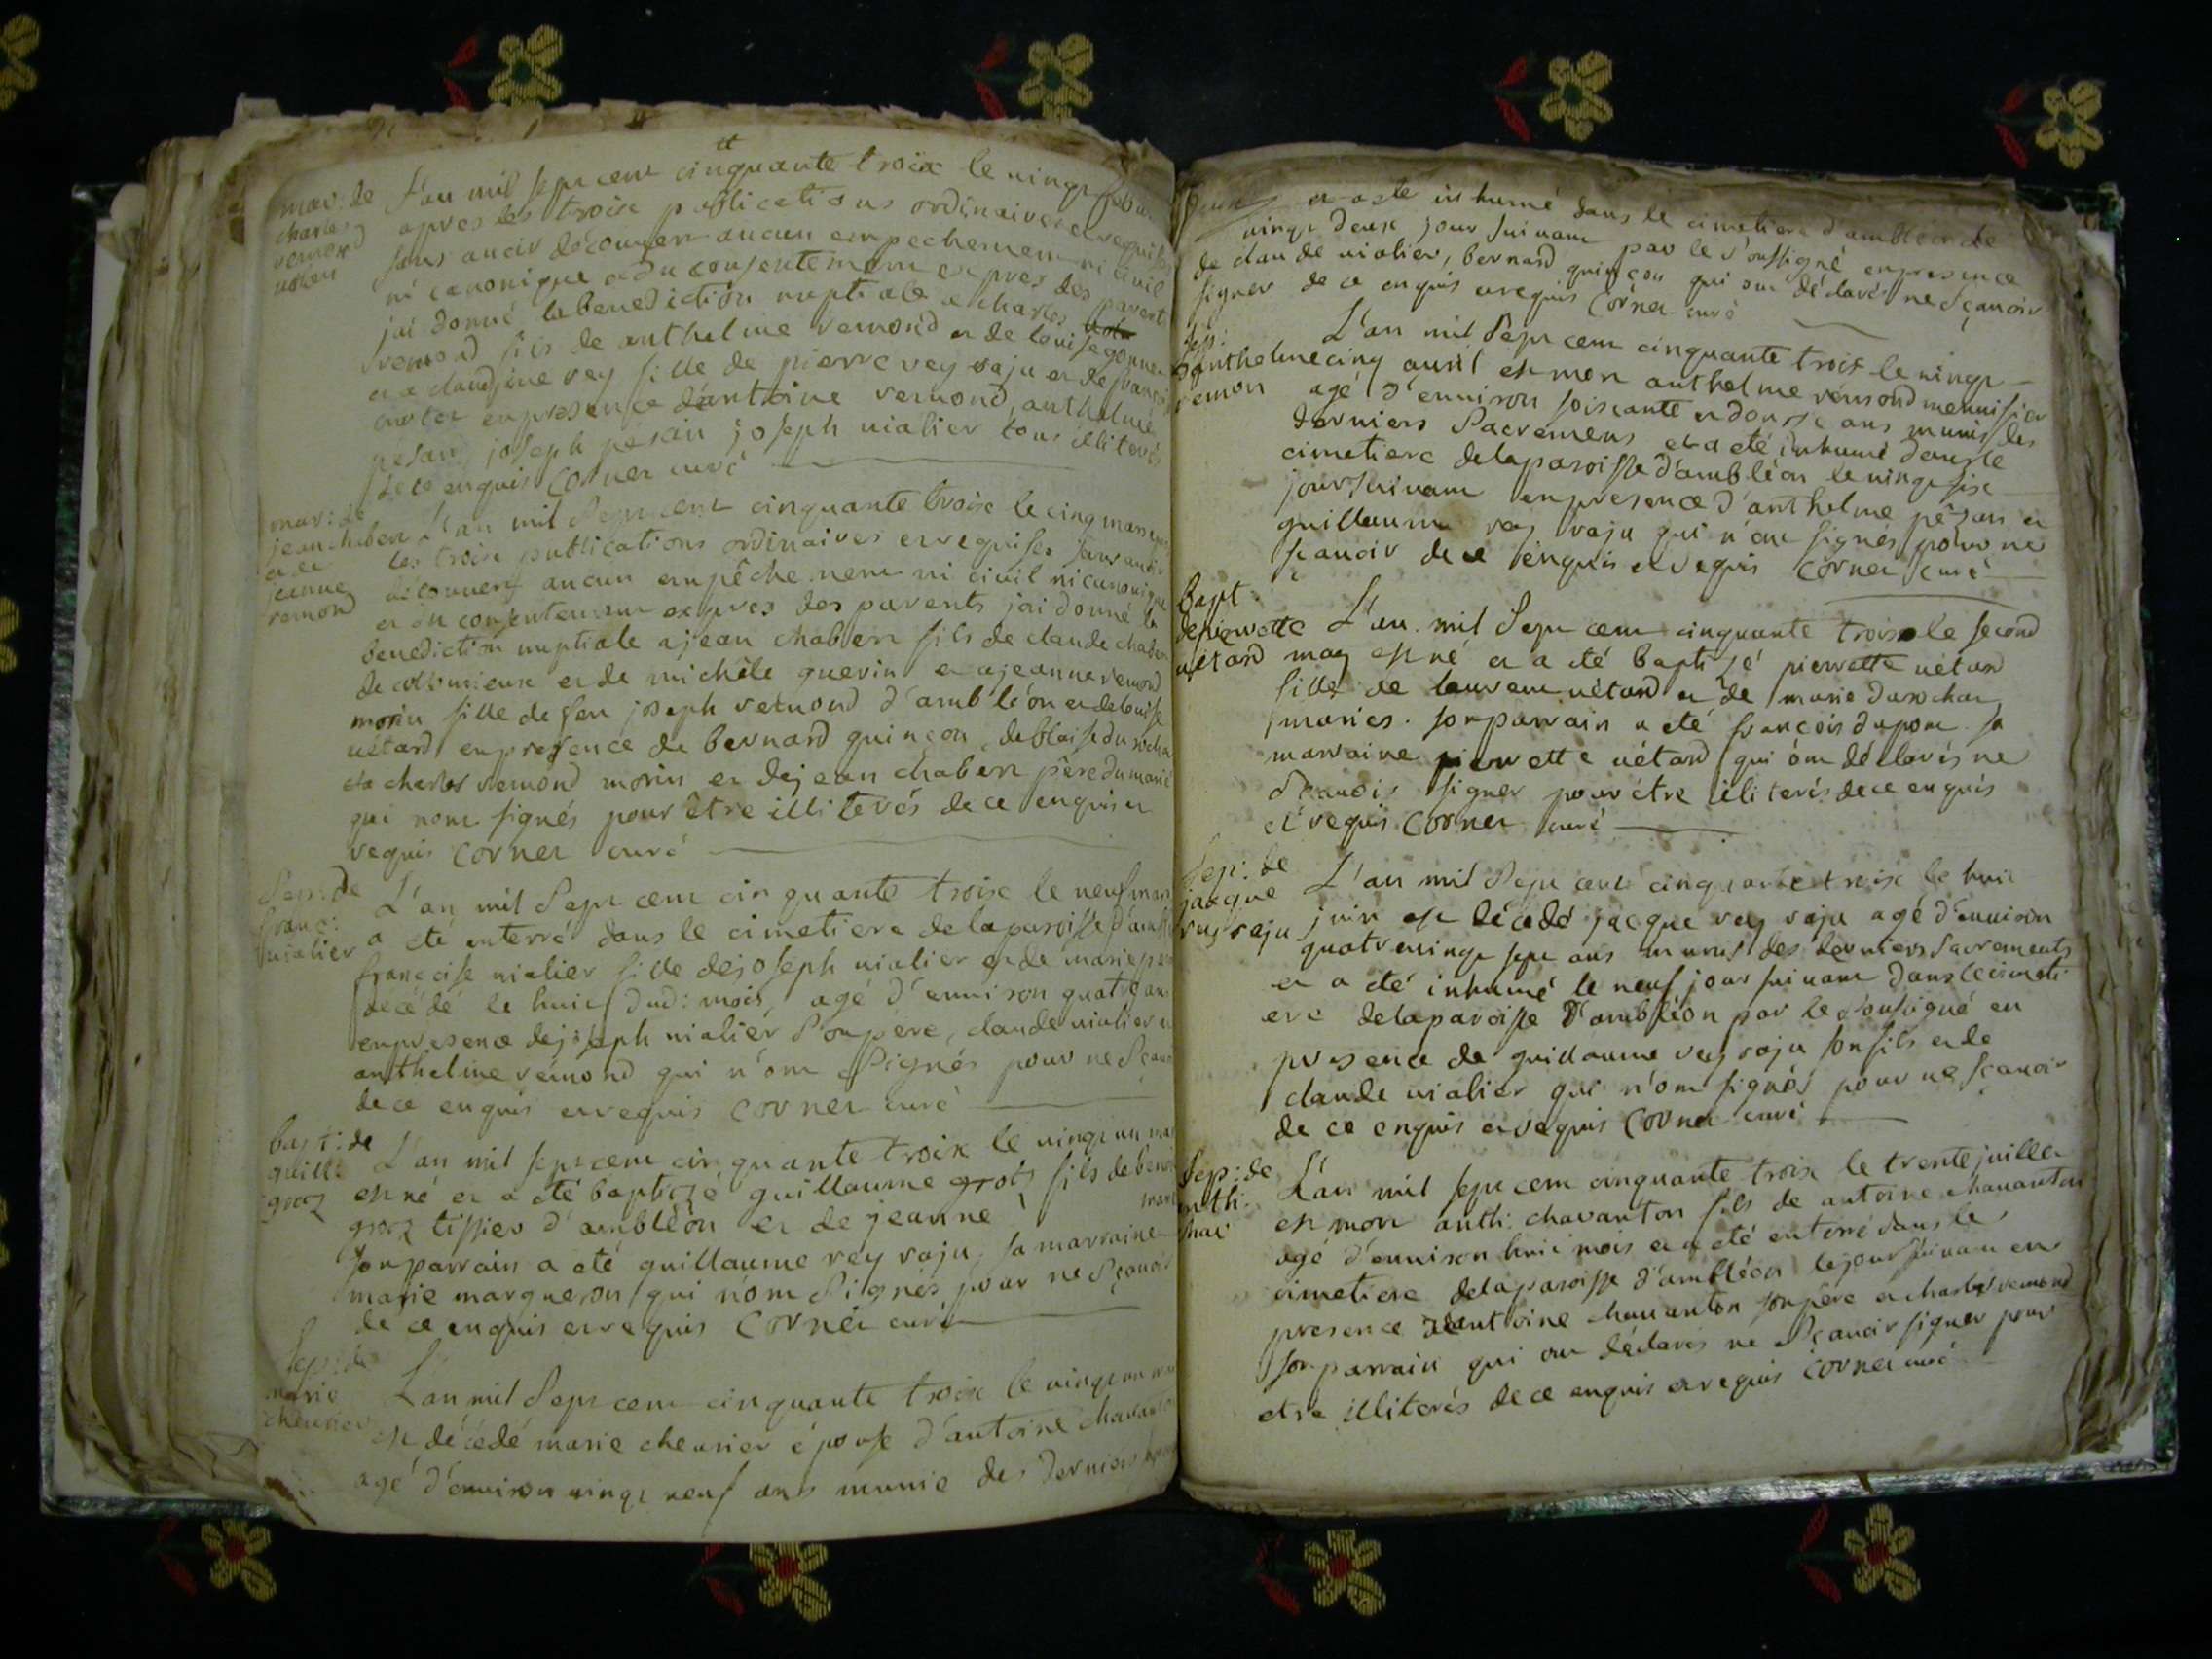 mar: de
charles
remond
L'an mil sept cent cinquante troix le vingt
apres les troix publications ordinaires et requises
sans avoir découvert aucun empechement ni civil
ni canonique et du consentement expres des parents
jai donné la benediction nuptiale a charles
remond fils de anthelme remond et de louise
et a claudine rey fille de pierre rey raju et de
en presence d'antoine remond, anthelme
pesan, joseph pesan joseph vialier tous illiterés
de ce enquis Cornet curé
mar: de
jean chabert
et de
jeanne
remond
L'an mil Sept cent cinquante troix le cinq mars
les troix publications ordinaires et requises sans avoir
découvert aucun empêchement ni civil ni canonique
et du consentement expres des parents jai donné la
benediction nuptiale a jean chabert fils de claude
de et de michèle guerin et a jeanne remond
morin fille de feu joseph remond d'ambléon et de louise
vétard en presence de bernard quinçon, de blaise
de charles remond morin et de jean chabert père du marié
qui n'ont signés pour être illiterés de ce enquis et
requis Cornet curé
Sep: de
franc:
vialier
L'an mil Sept cent cinquante troix le neuf mars
a été enterré dans le cimetiere de la paroisse
françoise vialier fille de joseph vialier et de marie
décédé le huit dud: mois, agé d'environ quatre ans
en presence de joseph vialier Son père, claude vialier et
anthelme rémond qui n'ont Signés pour ne
de ce enquis et requis Cornet curé
bapt: de
guille
groz
L'an mil sept cent cinquante troix le vingt un
est né et a été baptizé guillaume groz fils de
groz tissier d'ambléon et de jeanne
son parrain a eté guillaume rey raju, sa marraine
marie margueron qui n'ont Signés pour ne Sçavoir
de ce enquis et requis Cornet curé
Sep: de
marie
cheurier
L'an mil Sept cent cinquante troix le vingt un
est décédé marie cheurier épouse d'antoine
agé d'environ vingt neuf ans munie des derniers
et a eté inhumé dans le cimetiere d'ambléon le
vingt deux jour suivant par le s'oussigné en presence
de claude vialier, bernard quinçon qui ont déclarés ne Sçavoir
signer de ce enquis et requis Cornet curé
Sep:
d'anthelme
remon
L'an mil Sept cent cinquante troix le vingt
cinq avril est mort anthelme rémond menuisier
agé d'environ soixante et douze ans munis des
derniers Sacremens et a eté inhumé dans le
cimetiere de la paroisse d'ambléon le vingt six
jour suivant en presence d'anthelme pésan et
guillaume rey raju qui n'ont signés pour ne
sçavoir de ce enquis et requis Cornet curé
Bapt:
de pierrette
vétard
L'an mil Sept cent cinquante troix le second
may est né et a été baptizé pierrette vétard
fille de laurent vétard et de marie
mariés. son parrain a eté françois dupont sa
marraine pierrette vétard qui ont déclarés ne
Scavoir signer pour être illiterés de ce enquis
et requis Cornet curé
Sep: de
jacque
rey raju
L'an mil Sept cent cinquante troix le huit
juin est décédé jacque rey raju agé d'environ
quatrevingt sept ans munis des derniers sacrements
et a été inhumé le neuf jour suivant dans le cimeti
ere de la paroisse d'ambléon par le soussigné en
presence de guillaume rey raju son fils et de
claude vialier qui n'ont signés pour ne sçavoir
de ce enquis et requis Cornet curé
Sep: de
anth:
chav
L'an mil sept cent cinquante troix le trente juillet
est mort anth: chavanton fils de antoine chavanton
agé d'environ huit mois et a été enterré dans le
cimetiere de la paroisse d'ambléon le jour suivant en
presence d'antoine chavanton son père et charles remond
son parrain qui ont déclarés ne Sçavoir signer pour
etre illiterés de ce enquis et requis Cornet curé